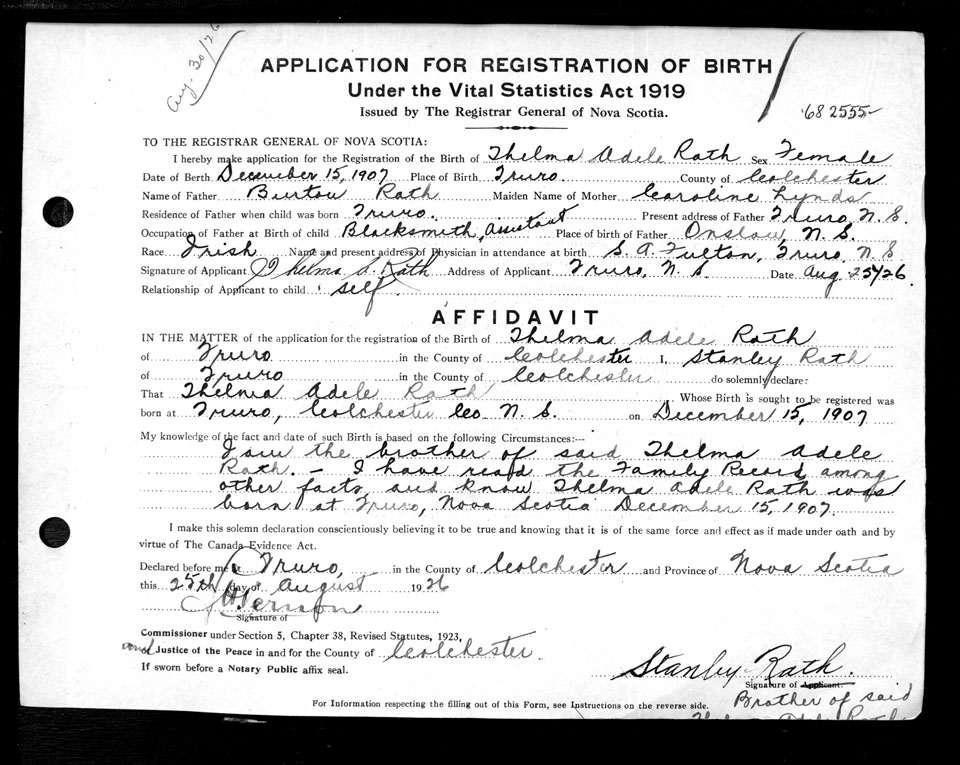 Aug. 30/26
APPLICATION FOR REGISTRATION OF BIRTH
Under the Vital Statistics Act 1919
Issued by The Registrar General of Nova Scotia.
68 2555-
TO THE REGISTRAR GENERAL OF NOVA SCOTIA:
I hereby make application for the Registration of the Birth of Thelma Adele Rath Sex Female
Date of Berth December 15, 1907 Place of Birth Truro. County of Colchester
Name of Father Burton Rath Maiden Name of Mother Caroline Lynds
Residence of Father when child was born Truro. Present address of Father Truro, N. S.
Occupation of Father at Birth of child Blacksmith, assistant Place of birth of Father Onslow, N. S.
Race Irish Name and present address of Physician in attendance at birth S. A. Fulton, Truro, N. S
Signature of Applicant Thelma A. Rath Address of Applicant Truro, N. S. Date Aug 25/26
Relationship of Applicant to child self.
AFFIDAVIT
IN THE MATTER of the application for the registration of the Birth of Thelma Adele Rath
of Truro in the County of Colchester I, Stanley Rath
of Truro in the County of Colchester do solemnly declare:
That Thelma Adele Rath Whose Birth is sought to be registered was
born at Truro, Colchester Co. N. S. on December 15, 1907
My knowledge of the fact and date of such Birth is based on the following Circumstances:--
I am the brother of said Thelma Adele
Rath. - I have read the Family Record among
other facts and know Thelma Adele Rath was
born at Truro, Nova Scotia December 15, 1907.
I make this solemn declaration conscientiously believing it to be true and knowing that it is of the same force and effect as if made under oath and by
virtue of The Canada Evidence Act.
Declared before me at Truro, in the County of Colchester and Province of Nova Scotia
this 25th day of August 1926
Vernon
Signature of
Commissioner under Section 5, Chapter 38, Revised Statutes, 1923,
and Justice of the Peace in and for the County of Colchester.
If sworn before a Notary Public affix seal.
Stanley Rath.
Signature of Applicant.
Brother of said
Thelma Adele Rath
For Information respecting the filling out of this Form, see Instructions on the reverse side.